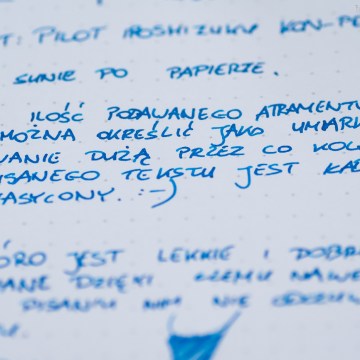 T: PILOT IROSHIZUKU KON-PE
SUNIE PO PAPIERZE.
ILOŚĆ PODAWANEGO ATRAMENTU
MOŻNA OKREŚLIĆ JAKO UMIAR
WANIE DUŻĄ PRZEZ CO KOL
SANEGO TEKSTU JEST KA
ASYCONY. :-)
ÓRO JEST LEKKIE I DOBR
ANE DZIĘKI CZEMU NAWE
PISANIU NIE